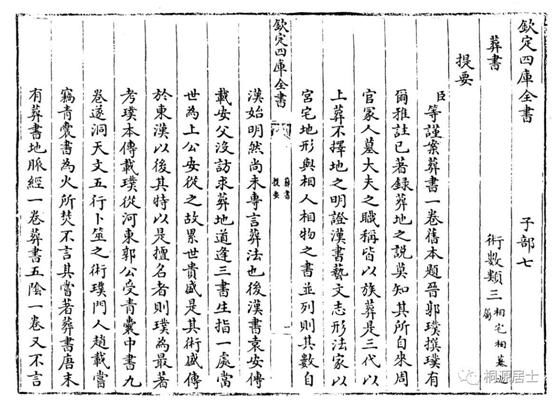 欽定四庫全書
子部七
葬書
術數類三 相宅相墓之屬
提要
臣等謹案葬書一卷舊本題晉郭璞撰璞有
爾雅註已著録葬地之說莫知其所自来周
官冢人墓大夫之職稱皆以族葬是三代以
上葬不擇地之明證漢書藝文志形法家以
宮宅地形與相人相物之書並列則其數自
欽定四庫全書
葬書
提要
漢始明然尚未專言葬法也後漢書袁安傳
載安父没訪求葬地道逢三書生指一處當
世為上公安從之故累世貴盛是其術盛傳
於東漢以後其特以是擅名者則璞為最著
考璞本傳載璞從河東郭公受青囊中書九
卷遂洞天文五行卜筮之術璞門人趙載嘗
竊青囊書為火所焚不言其嘗著葬書唐末
有葬書地脈經一卷葬書五陰一卷又不言
桐源居士